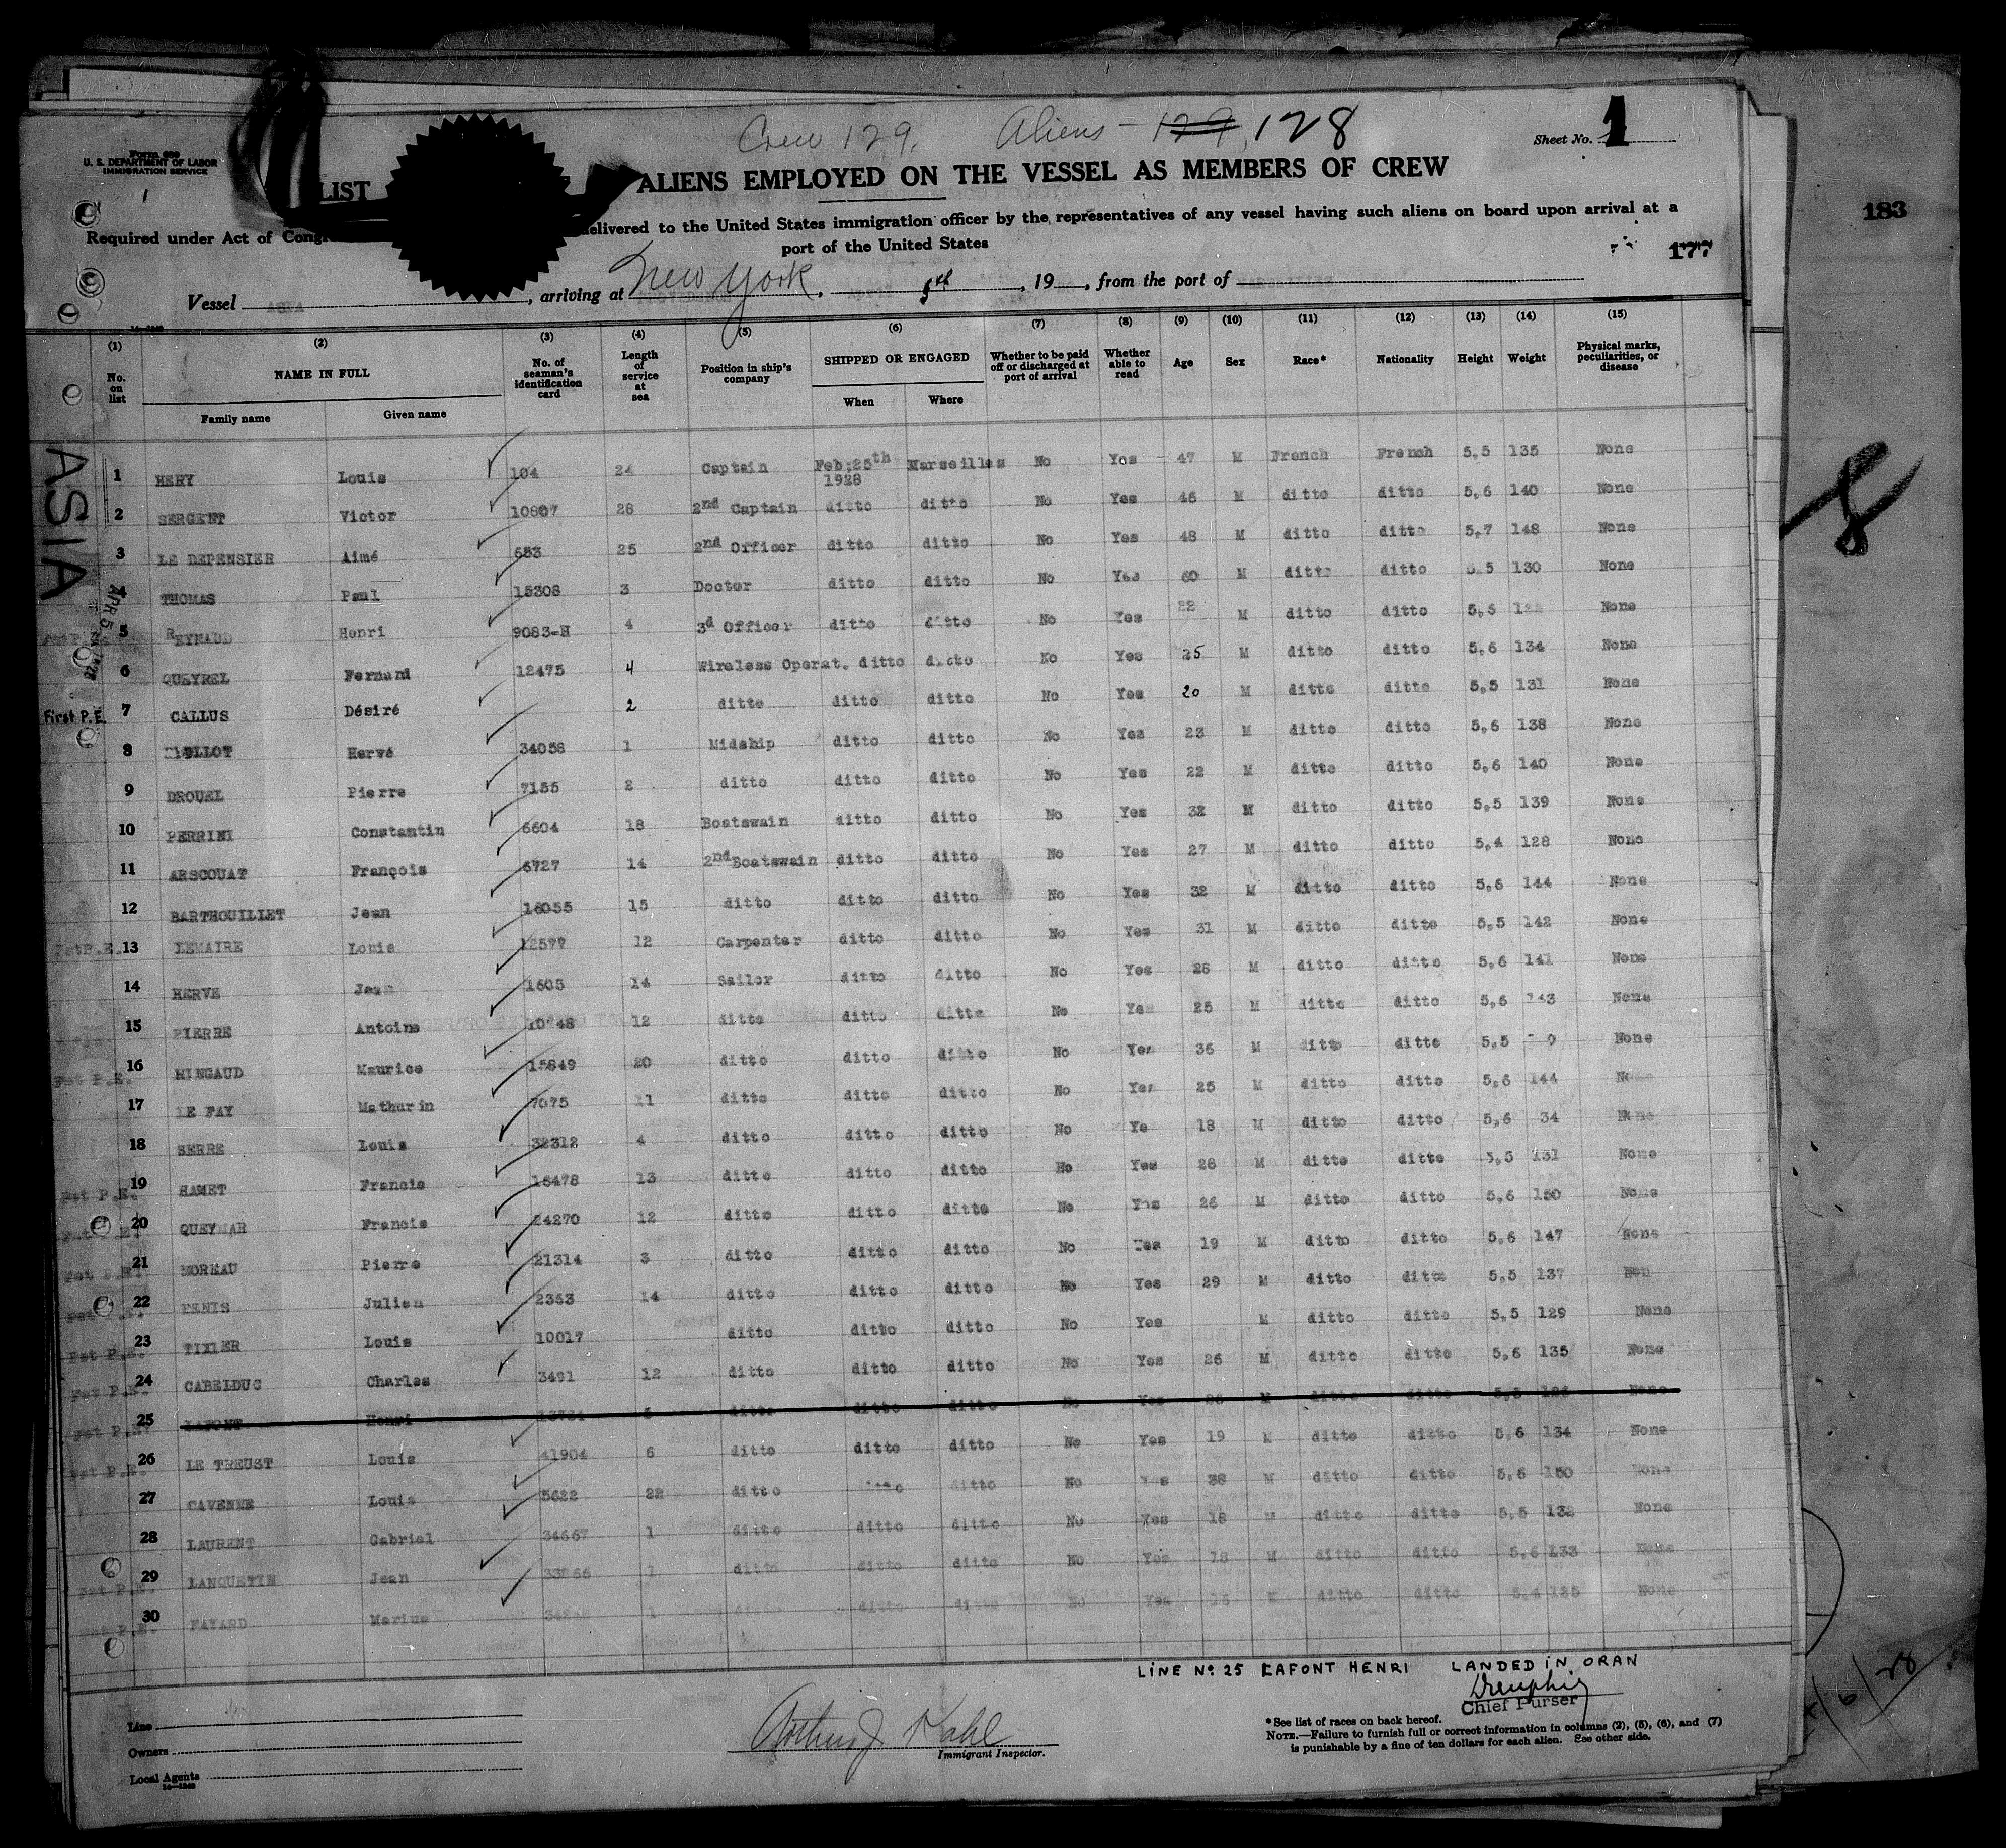 Crew 129. Aliens - 129, 128
Sheet No. 1
Form 689
U. S. DEPARTMENT OF LABOR
IMMIGRATION SERVICE
LIST ALIENS EMPLOYED ON THE VESSEL AS MEMBERS OF CREW
Required under Act of delivered to the United States immigration officer by the representatives of any vessel having such aliens on board upon arrival at a
port of the United States
183
177
Vessel ASIA, arriving at New York, April 5th, 19 , from the port of MARSEILLES
(1) (2) (3) (4) (5) (6) (7) (8) (9) (10) (11) (12) (13) (14) (15)
No. on list NAME IN FULL No. of seaman's identification card Length of service at sea Position in ship's company SHIPPED OR ENGAGED Whether to be paid off or discharged at port of arrival Whether able to read Age Sex Race* Nationality Height Weight Physical marks, peculiarities, or disease
Family name Given name When Where
ASIA
APR 5 1928
8
1 HERY Louis 104 24 Captain Feb:25th 1928 Marseilles No Yes 47 M French French 5,5 135 None
2 SERGENT Victor 10807 28 2nd Captain ditto ditto No Yes 46 M ditto ditto 5,6 140 None
3 LE DEPENSIER Aimé 653 25 2nd Officer ditto ditto No Yes 48 M ditto ditto 5,7 148 None
4 THOMAS Paul 15308 3 Doctor ditto ditto No Yes 60 M ditto ditto 5,5 130 None
5 REYNAUD Henri 9083-H 4 3d Officer ditto ditto No Yes 22 M ditto ditto 5,6 None
6 QUEYREL Fernand 12475 4 Wireless Operat. ditto ditto No Yes 25 M ditto ditto 5,6 134 None
First P.E. 7 CALLUS Désiré 2 ditto ditto ditto No Yes 20 M ditto ditto 5,5 131 None
8 Hervé 34058 1 Midship ditto ditto No Yes 23 M ditto ditto 5,6 138 None
9 DROUEL Pierre 7155 2 ditto ditto ditto No Yes 22 M ditto ditto 5,6 140 None
10 PERRINI Constantin 6604 18 Boatswain ditto ditto No Yes 32 M ditto ditto 5,5 139 None
11 ARSCOUAT François 6727 14 2nd Boatswain ditto ditto No Yes 27 M ditto ditto 5,4 128 None
12 BARTHOUILLET Jean 18055 15 ditto ditto ditto No Yes 32 M ditto ditto 5,6 144 None
Fst P.E. 13 LEMAIRE Louis 12577 12 Carpenter ditto ditto No Yes 31 M ditto ditto 5,5 142 None
14 HERVE Jean 1605 14 Sailor ditto ditto No Yes 28 M ditto ditto 5,6 141 None
15 PIERRE Antoine 12 ditto ditto ditto No Yes 25 M ditto ditto 5,6 143 None
Fst P.E. 16 MINGAUD Maurice 15849 20 ditto ditto ditto No Yes 36 M ditto ditto 5,5 None
17 LE FAY Mathurin 7075 11 ditto ditto ditto No Yes 25 M ditto ditto 5,6 144 None
18 SERRE Louis 32312 4 ditto ditto ditto No Ye 18 M ditto ditto 5,6 34 None
Fst P.E. 19 HAMET Francis 16478 13 ditto ditto ditto No Yes 28 M ditto ditto 5,5 131 None
Fst P.E. 20 QUEYMAR Francis 24270 12 ditto ditto ditto No Yes 26 M ditto ditto 5,6 150 None
Fst P.E. 21 MOREAU Pierre 21314 3 ditto ditto ditto No Yes 19 M ditto ditto 5,6 147 None
Fst P.E. 22 DENIS Julien 2353 14 ditto ditto ditto No Yes 29 M ditto ditto 5,5 137 Non
Fst P.E. 23 TIXIER Louis 10017 ditto ditto ditto No Yes M ditto ditto 5,5 129 None
Fst P.E. 24 CABELDUC Charles 3491 12 ditto ditto ditto No Yes 26 M ditto ditto 5,6 135 None
Fst P.E. 25 LAFONT Henri 5 ditto ditto ditto No Yes M ditto ditto 5,5 None
Fst P.E. 26 LE TREUST Louis 41904 6 ditto ditto ditto No Yes 19 M ditto ditto 5,6 134 None
27 CAVENNE Louis 5622 22 ditto ditto ditto No Yes 38 M ditto ditto 5,6 150 None
28 LAURENT Gabriel 34667 1 ditto ditto ditto No Yes 18 M ditto ditto 5,5 132 None
Fst P.E. 29 LANQUETIN Jean 1 ditto ditto ditto No Yes 18 M ditto ditto 5,6 133 None
Fst P.E. 30 FAYARD Marius 1 ditto ditto ditto No Yes M ditto ditto 5,4 125 None
LINE Nº 25 LAFONT HENRI LANDED IN ORAN
Chief Purser
Line
Owners
Local Agents
14—1240
Arthur J Kahl
Immigrant Inspector.
*See list of races on back hereof.
NOTE.—Failure to furnish full or correct information in columns (2), (5), (6), and (7)
is punishable by a fine of ten dollars for each alien. See other side.